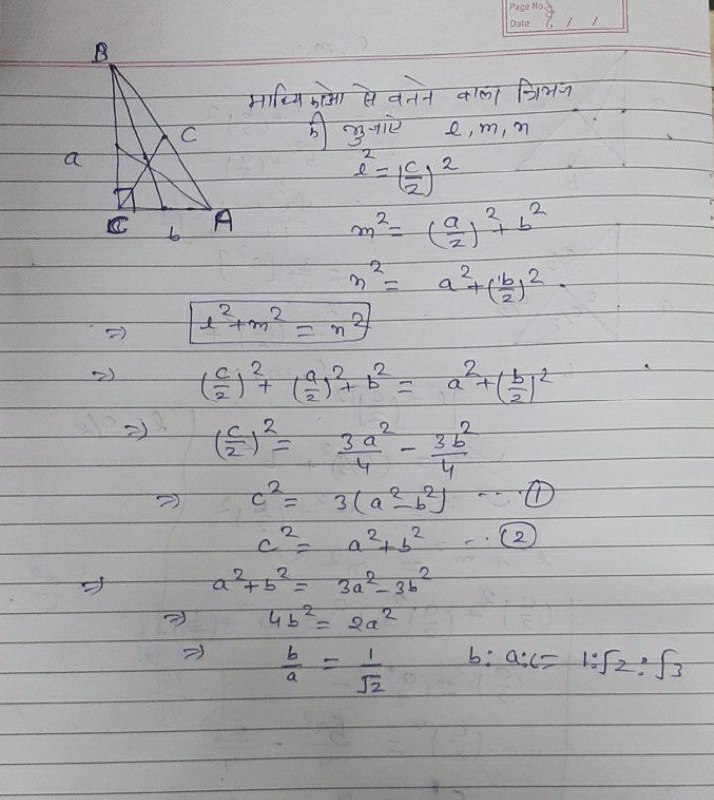 Page No.
Date / /
B
माध्यिकाओ से बनने वाला त्रिभुज
की भुजाऐ l, m, n
C
a
l² = (c/2)²
C b A
m² = (a/2)² + b²
n² = a² + (b/2)².
⇒ l² + m² = n²
⇒ (c/2)² + (a/2)² + b² = a² + (b/2)²
⇒ (c/2)² = 3a²/4 - 3b²/4
⇒ c² = 3(a²-b²) ... ①
c² = a²+b² ... ②
⇒ a²+b² = 3a²-3b²
⇒ 4b² = 2a²
⇒ b/a = 1/√2 b:a:c = 1:√2:√3